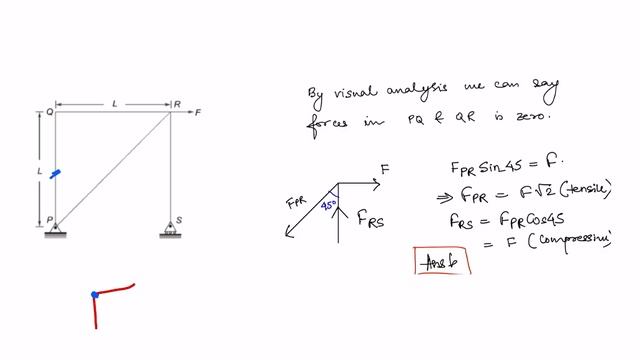 L
Q
R
F
L
P
S
By visual analysis we can say
forces in PQ & QR is zero.
F
FPR
45°
FRS
FPR Sin45 = F.
⇒ FPR = F√2 (tensile)
FRS = FPR Cos45
= F (Compressive)
Ans b